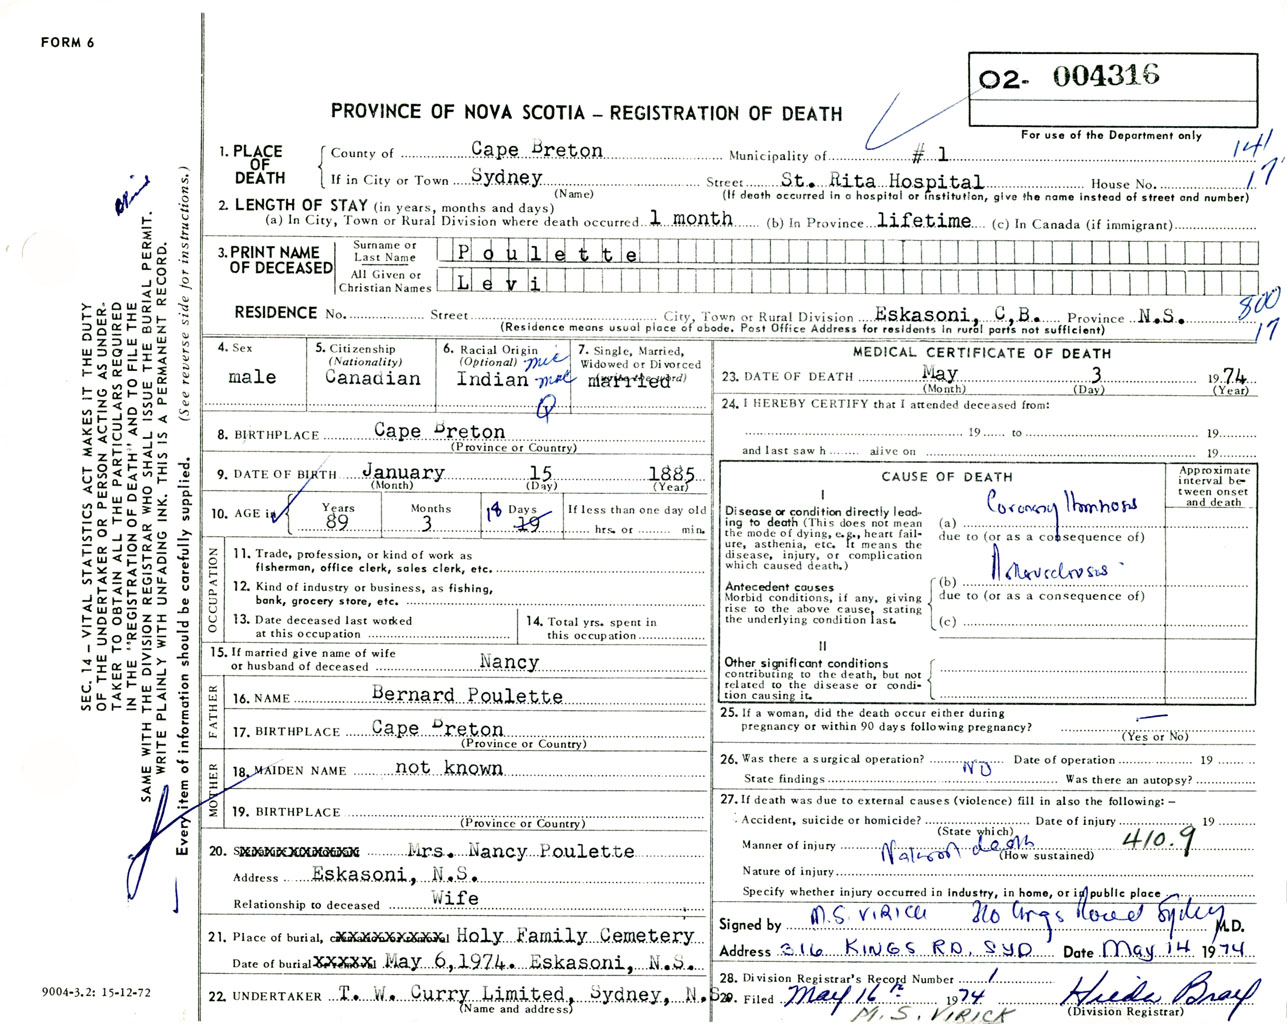 FORM 6
O2- 004316
For use of the Department only
PROVINCE OF NOVA SCOTIA – REGISTRATION OF DEATH
1. PLACE OF DEATH
County of Cape Breton Municipality of # 1 141
If in City or Town Sydney Street St. Rita Hospital House No. 17
(Name) (If death occurred in a hospital or institution, give the name instead of street and number)
2. LENGTH OF STAY (in years, months and days)
(a) In City, Town or Rural Division where death occurred 1 month (b) In Province lifetime (c) In Canada (if immigrant)
3. PRINT NAME OF DECEASED
Surname or Last Name Poulette
All Given or Christian Names Levi
RESIDENCE No. Street City, Town or Rural Division Eskasoni, C,B. Province N.S. 800
(Residence means usual place of abode. Post Office Address for residents in rural parts not sufficient) 17
4. Sex
male
5. Citizenship
(Nationality)
Canadian
6. Racial Origin
(Optional) mic
Indian mac
7. Single, Married,
Widowed or Divorced
married
8. BIRTHPLACE Cape Breton
(Province or Country)
9. DATE OF BIRTH January 15 1885
(Month) (Day) (Year)
10. AGE in
Years 89
Months 3
18 Days 19
If less than one day old
hrs. or min.
OCCUPATION
11. Trade, profession, or kind of work as
fisherman, office clerk, sales clerk, etc.
12. Kind of industry or business, as fishing,
bank, grocery store, etc.
13. Date deceased last worked
at this occupation
14. Total yrs. spent in
this occupation
15. If married give name of wife
or husband of deceased Nancy
FATHER
16. NAME Bernard Poulette
17. BIRTHPLACE Cape Breton
(Province or Country)
MOTHER
18. MAIDEN NAME not known
19. BIRTHPLACE
(Province or Country)
20. Mrs. Nancy Poulette
Address Eskasoni, N.S.
Relationship to deceased Wife
21. Place of burial, Holy Family Cemetery
Date of burial May 6,1974. Eskasoni, N.S.
22. UNDERTAKER T. W. Curry Limited, Sydney, N.S.
(Name and address)
MEDICAL CERTIFICATE OF DEATH
23. DATE OF DEATH May 3 1974
(Month) (Day) (Year)
24. I HEREBY CERTIFY that I attended deceased from:
19 to 19
and last saw h alive on 19
CAUSE OF DEATH
Approximate interval between onset and death
I
Disease or condition directly leading to death (This does not mean
the mode of dying, e.g., heart failure, asthenia, etc. It means the
disease, injury, or complication
which caused death.)
(a) Coronary thrombosis
due to (or as a consequence of)
Antecedent causes
Morbid conditions, if any, giving
rise to the above cause, stating
the underlying condition last.
(b)
due to (or as a consequence of)
(c)
II
Other significant conditions
contributing to the death, but not
related to the disease or condition causing it.
25. If a woman, did the death occur either during
pregnancy or within 90 days following pregnancy? —
(Yes or No)
26. Was there a surgical operation? NO Date of operation 19
State findings Was there an autopsy?
27. If death was due to external causes (violence) fill in also the following: –
Accident, suicide or homicide? Date of injury 19
(State which)
Manner of injury Natural death 410.9
(How sustained)
Nature of injury
Specify whether injury occurred in industry, in home, or in public place
Signed by M.S. VIRICK Kings Road Sydney M.D.
Address 316 KINGS RD, SYD Date May 14 1974
28. Division Registrar's Record Number 1
29. Filed May 16th 1974 Hilda Bray
M. S. VIRICK (Division Registrar)
SEC. 14 – VITAL STATISTICS ACT MAKES IT THE DUTY
OF THE UNDERTAKER OR PERSON ACTING AS UNDER-
TAKER TO OBTAIN ALL THE PARTICULARS REQUIRED
IN THE "REGISTRATION OF DEATH" AND TO FILE THE
SAME WITH THE DIVISION REGISTRAR WHO SHALL ISSUE THE BURIAL PERMIT.
WRITE PLAINLY WITH UNFADING INK. THIS IS A PERMANENT RECORD.
Every item of information should be carefully supplied. (See reverse side for instructions.)
9004-3.2: 15-12-72